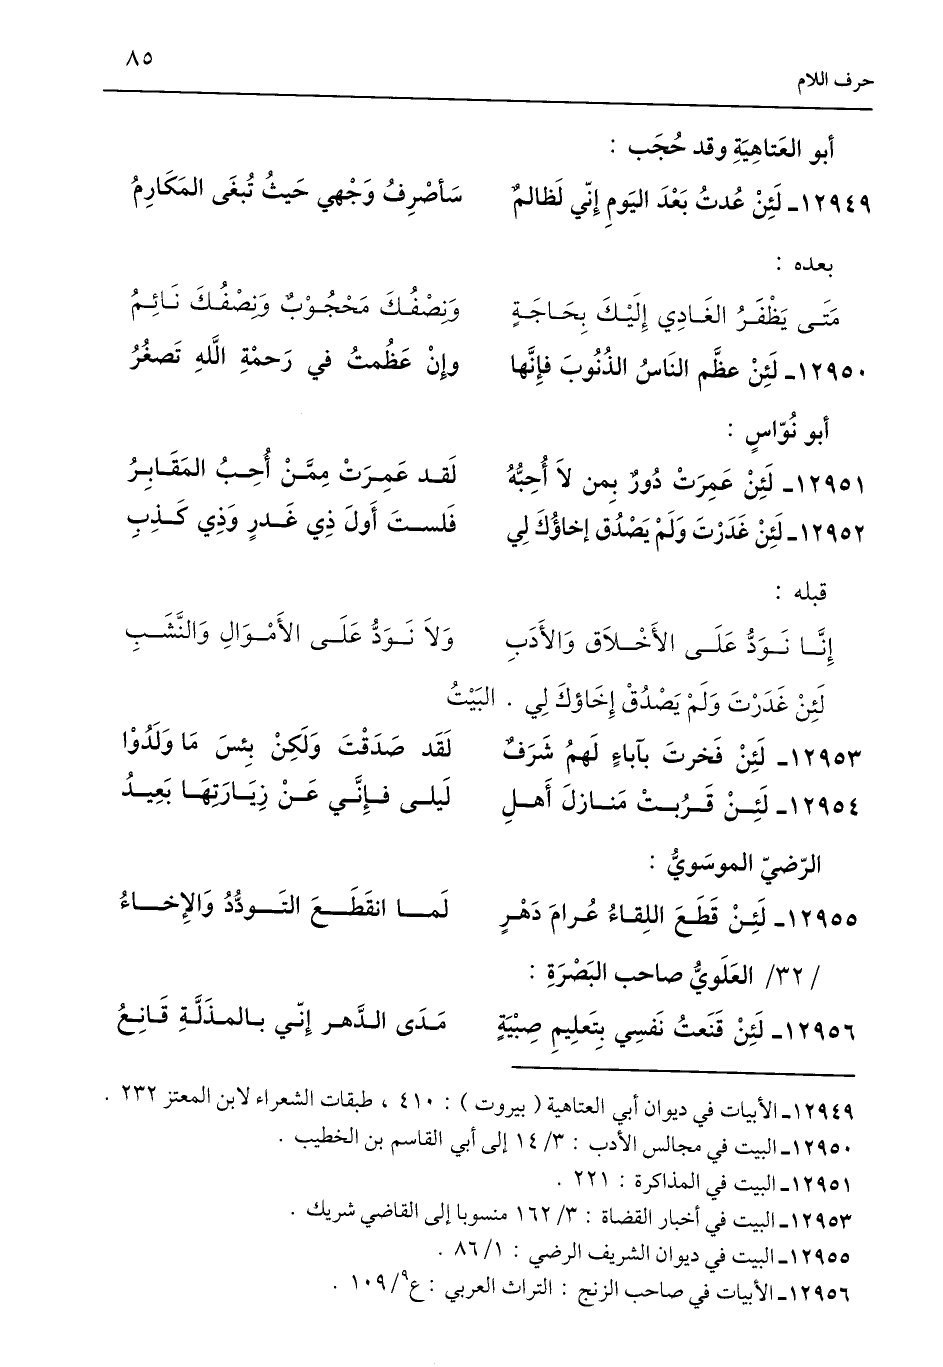 ٨٥
حرف اللام
أبو العَتاهِيَةِ وقد حُجَب :
١٢٩٤٩ـ لَئِنْ عُدتُ بَعْدَ اليَومِ إنّي لَظالمٌ سَأصْرِفُ وَجْهي حَيثُ تُبغَى المَكَارِمُ
بعده :
مَتَى يَظْفَرُ الغَادِي إِلَيْكَ بِحَاجَةٍ وَنِصْفُكَ مَحْجُوْبٌ وَنِصْفُكَ نَائِمُ
١٢٩٥٠ـ لَئِنْ عظَّم الناسُ الذُنُوبَ فإنَّها وإنْ عَظُمتُ في رَحمْةِ اللَّهِ تَصغُرُ
أبو نُوّاسٍ :
١٢٩٥١ـ لَئِنْ عَمِرَتْ دُورٌ بِمن لاَ أُحِبُّهُ لَقد عَمِرَتْ مِمَّنْ أُحِبُ المَقَابِرُ
١٢٩٥٢ـ لَئِنْ غَدَرْتَ وَلَمْ يَصْدُق إخاؤُكَ لِي فَلستَ أَولَ ذِي غَدرٍ وَذِي كَذِبِ
قبله :
إِنَّا نَوَدُّ عَلَى الأَخْلاَقِ وَالأَدَبِ وَلاَ نَوَدُّ عَلَى الأَمْوَالِ وَالنَّشَبِ
لَئِنْ غَدَرْتَ وَلَمْ يَصْدُقْ إِخَاؤكَ لِي . البَيْتُ
١٢٩٥٣ـ لَئِنْ فَخرتَ بآباءٍ لَهمُ شَرَفٌ لَقَد صَدَقْتَ وَلَكِنْ بِئسَ مَا وَلَدُوْا
١٢٩٥٤ـ لَئِنْ قَرُبتْ مَنازلَ أَهلِ لَيلى فإنَّي عَنْ زِيَارَتِهَا بَعِيدُ
الرّضيّ الموسَويُّ :
١٢٩٥٥ـ لَئِنْ قَطَعَ اللِقاءُ عُرامَ دَهْرٍ لَما انقَطَعَ التَودُّدُ وَالإِخاءُ
/ ٣٢/ العَلَويُّ صاحب البَصْرَةِ :
١٢٩٥٦ـ لَئِنْ قَنَعتُ نَفسِي بِتَعلِيمِ صِبْيَةٍ مَدَى الدَّهرِ إنّي بالمذَلَّةِ قَانِعُ
١٢٩٤٩ـ الأبيات في ديوان أبي العتاهية ( بيروت ) : ٤١٠ ، طبقات الشعراء لابن المعتز ٢٣٢ .
١٢٩٥٠ـ البيت في مجالس الأدب : ٣/ ١٤ إلى أبي القاسم بن الخطيب .
١٢٩٥١ـ البيت في المذاكرة : ٢٢١ .
١٢٩٥٣ـ البيت في أخبار القضاة : ٣/ ١٦٢ منسوبا إلى القاضي شريك .
١٢٩٥٥ـ البيت في ديوان الشريف الرضي : ١/ ٨٦ .
١٢٩٥٦ـ الأبيات في صاحب الزنج : التراث العربي : ع٩/ ١٠٩ .